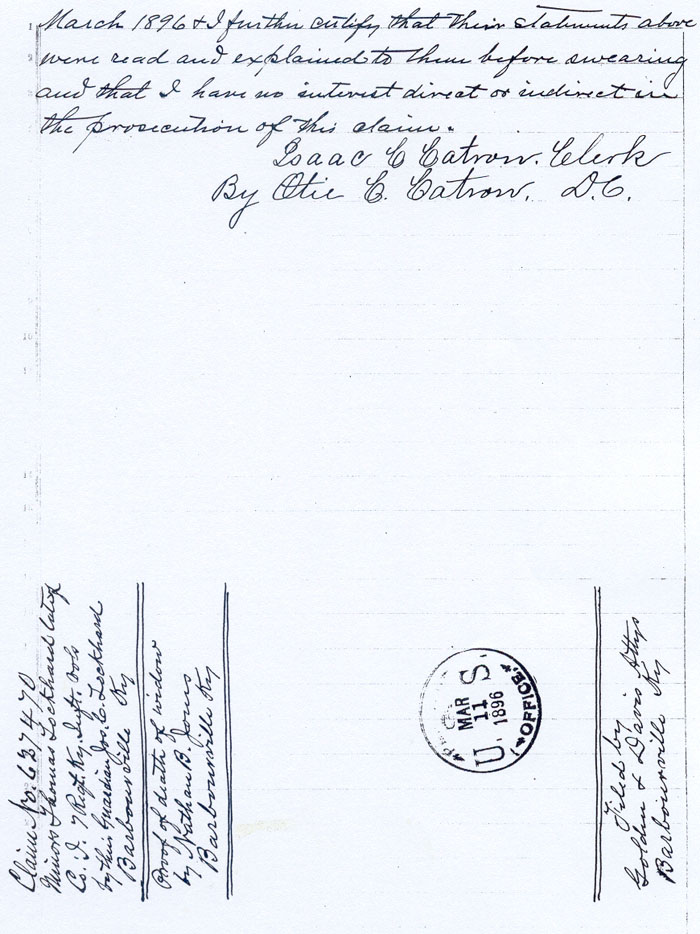 March 1896 & I further certify that their statements above
were read and explained to them before swearing
and that I have no interest direct or indirect in
the prosecution of this claim.
Isaac C Catron. Clerk
By Otie C. Catron. D.C.
Claim No. 637470
Minors of Thomas Lockhard late of
Co. I. 7 Regt. Ky. Inft. Vols
by their Guardian Jos. C. Lockhard
Barbourville Ky
Proof of death of widow
by Nathan B. Jones
Barbourville Ky
U. S.
MAR
11
1896
OFFICE
Filed by
Golden & Davis Attys
Barbourville Ky